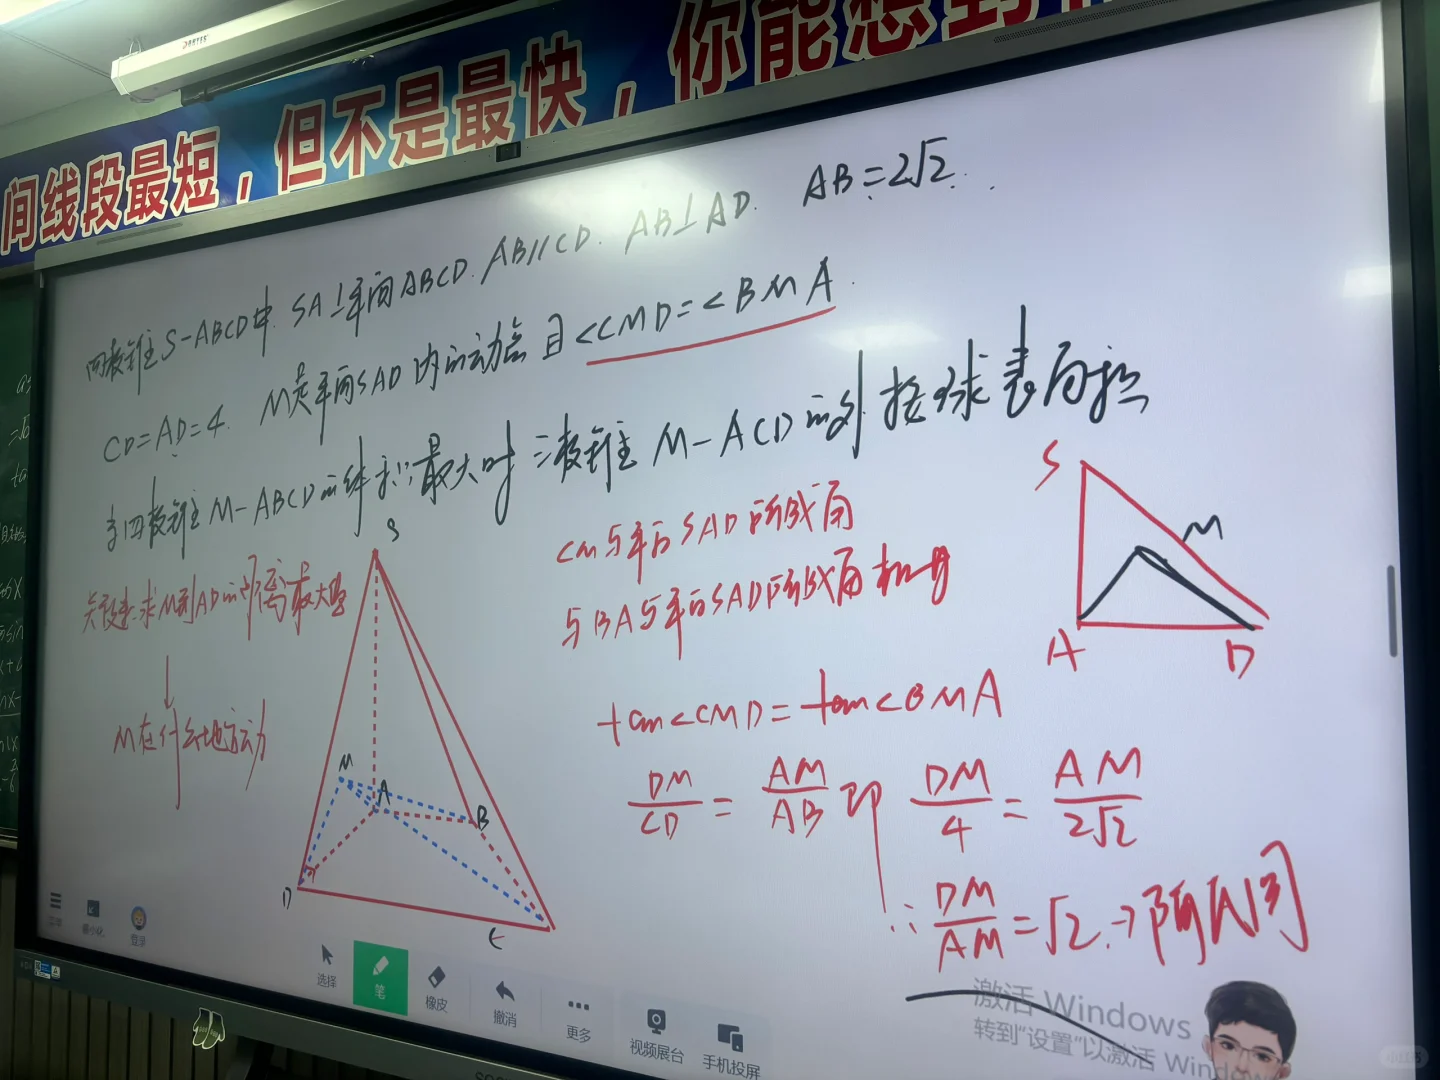 间线段最短，但不是最快，你能想到
四棱锥S-ABCD中. SA⊥平面ABCD. AB//CD. AB⊥AD. AB=2√2.
CD=AD=4. M是平面SAD内的动点且<CMD=<BMA.
当四棱锥M-ABCD的体积最大时三棱锥M-ACD的外接球表面积
关键:求M到AD的距离最大值
↓
M在什么地方动
S
M
A
B
D
C
CM与平面SAD所成角
与BA与平面SAD所成角相等
tan<CMD=tan<BMA
DM/CD=AM/AB 即 DM/4=AM/2√2
∴DM/AM=√2.→阿氏圆
S
M
A
D
最小化
登录
选择
笔
橡皮
撤消
更多
视频展台
手机投屏
激活 Windows
转到"设置"以激活 Windo
小红书